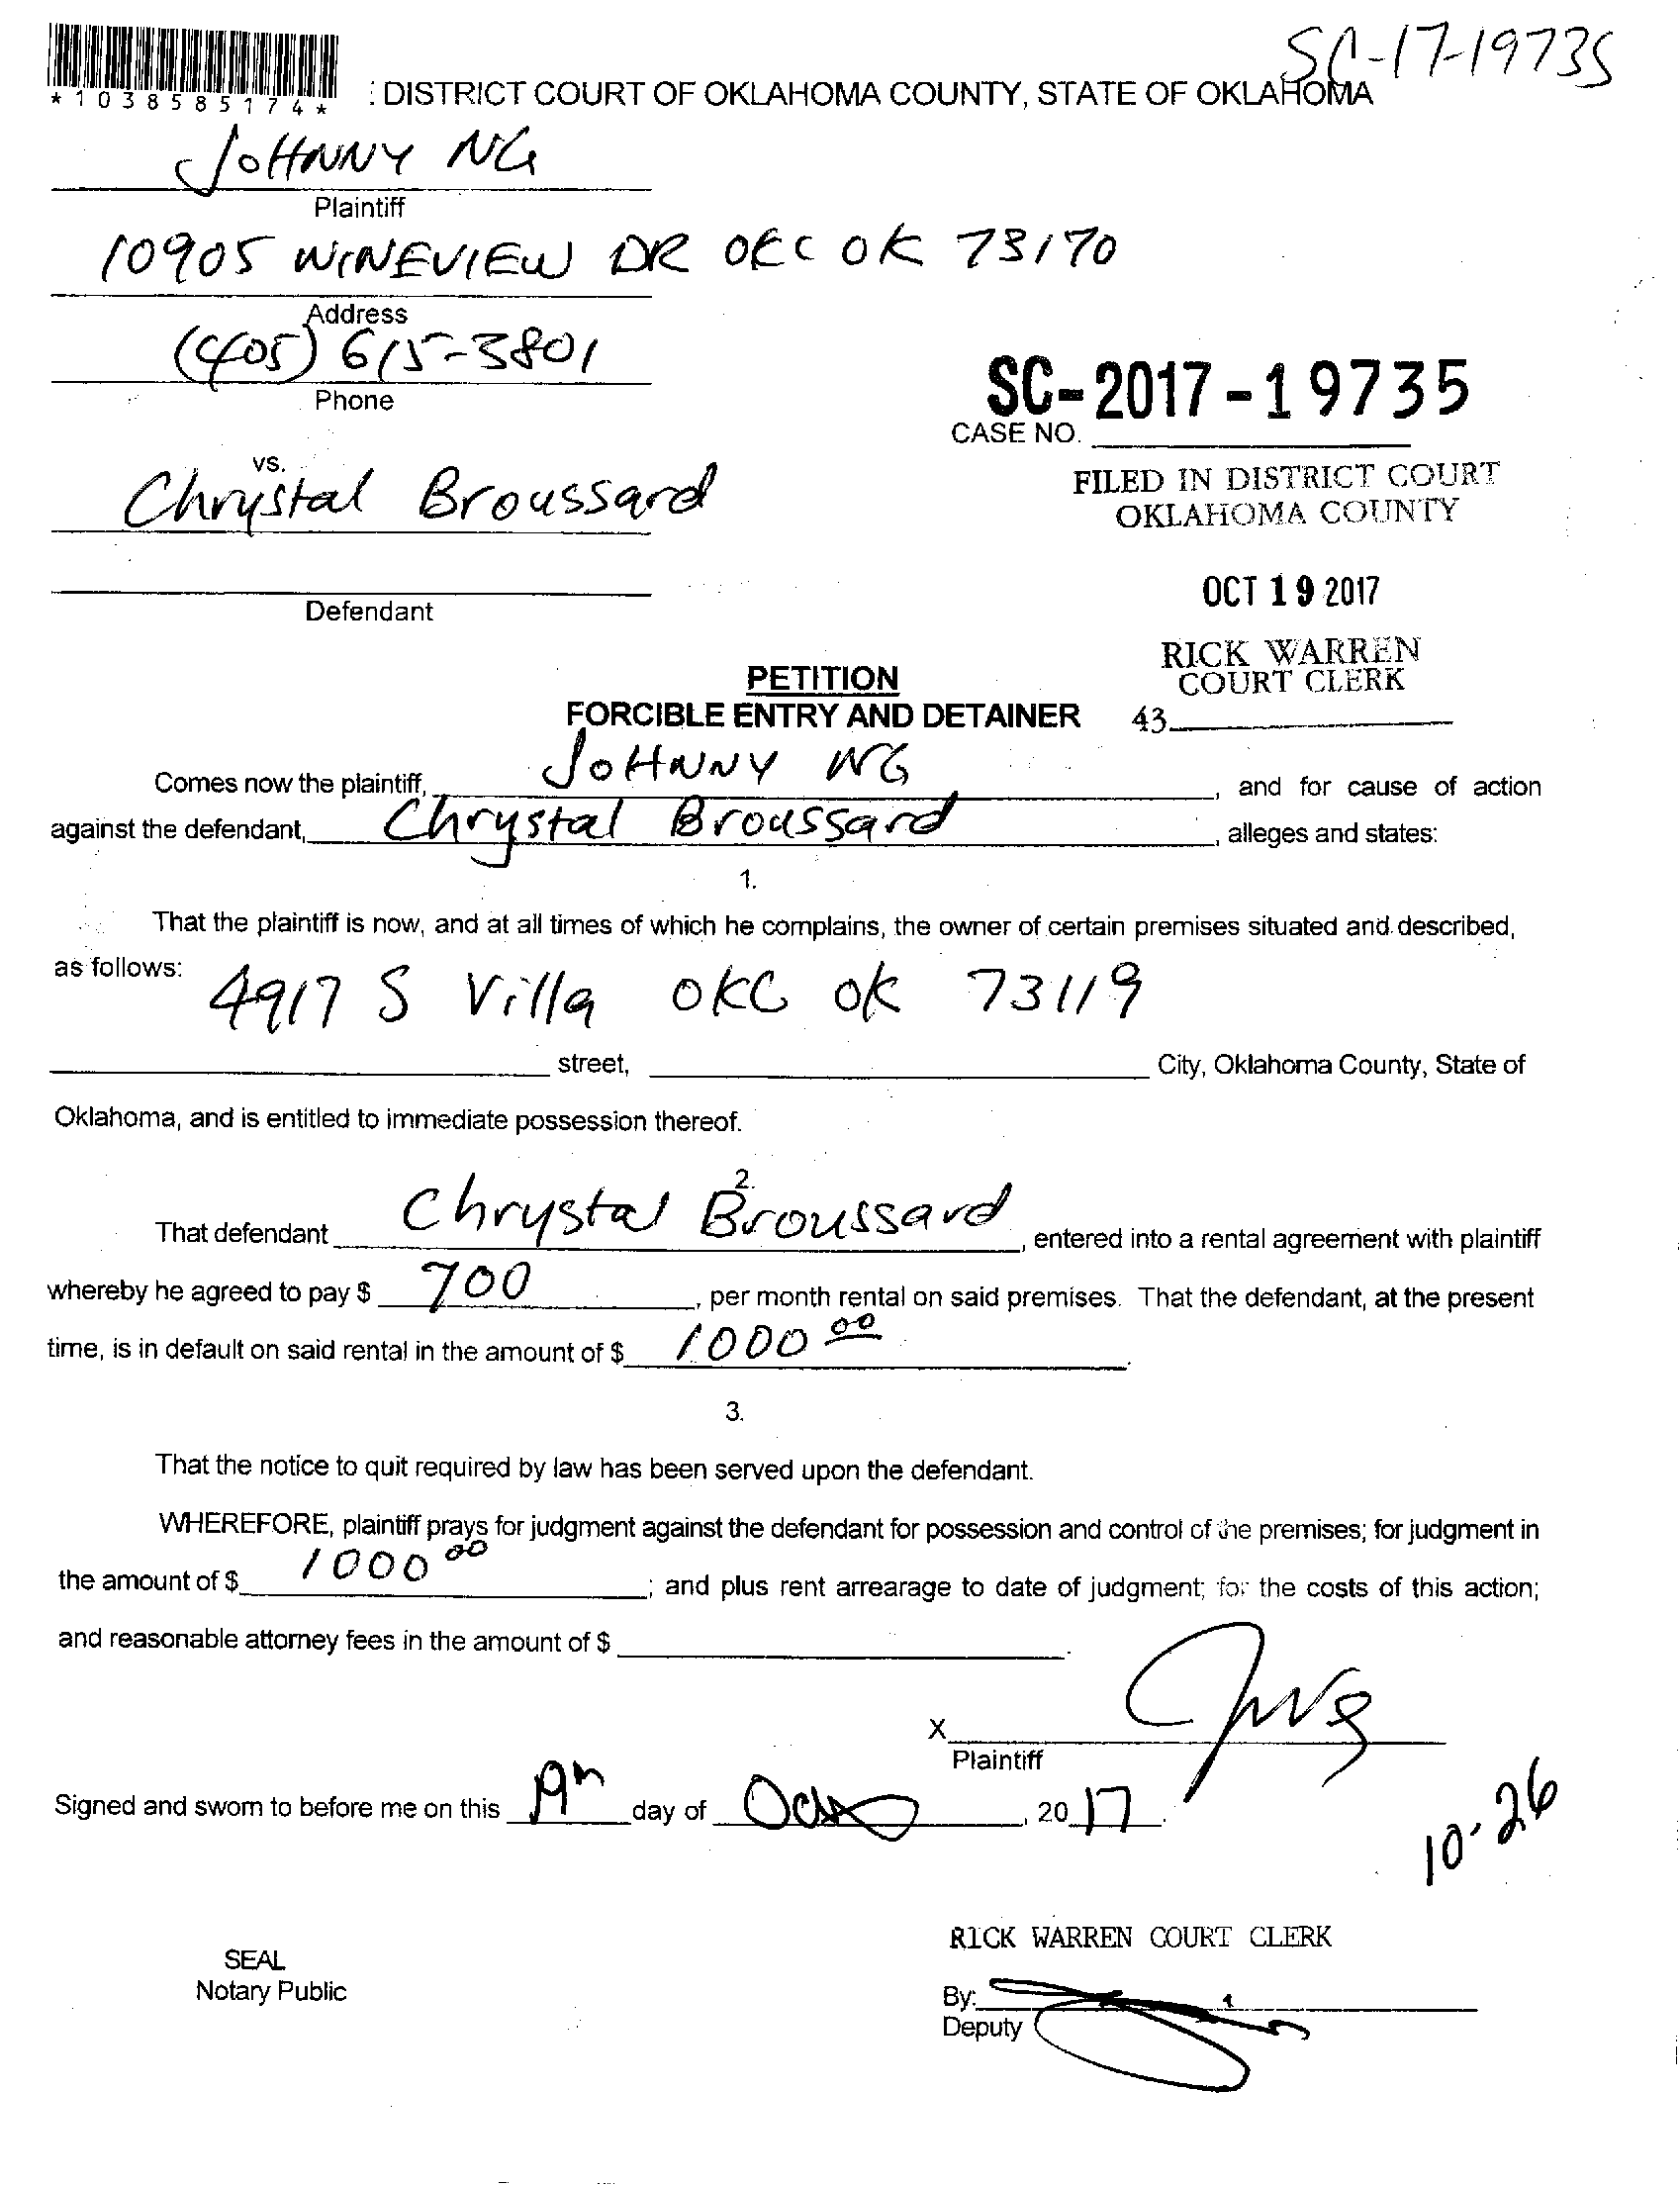 SC-17-19735
*1038585174*
: DISTRICT COURT OF OKLAHOMA COUNTY, STATE OF OKLAHOMA
JOHNNY NG
Plaintiff
10905 WINEVIEW DR OKC OK 73170
Address
(405) 615-3801
Phone
SC-2017-19735
CASE NO.
vs.
Chrystal Broussard
FILED IN DISTRICT COURT
OKLAHOMA COUNTY
OCT 19 2017
Defendant
RICK WARREN
COURT CLERK
43
PETITION
FORCIBLE ENTRY AND DETAINER
Comes now the plaintiff, JOHNNY NG, and for cause of action
against the defendant, Chrystal Broussard, alleges and states:
1.
That the plaintiff is now, and at all times of which he complains, the owner of certain premises situated and described,
as follows: 4917 S Villa OKC OK 73119
street, City, Oklahoma County, State of
Oklahoma, and is entitled to immediate possession thereof.
2.
That defendant Chrystal Broussard, entered into a rental agreement with plaintiff
whereby he agreed to pay $ 700, per month rental on said premises. That the defendant, at the present
time, is in default on said rental in the amount of $ 1000 00.
3.
That the notice to quit required by law has been served upon the defendant.
WHEREFORE, plaintiff prays for judgment against the defendant for possession and control of the premises; for judgment in
the amount of $ 1000 00; and plus rent arrearage to date of judgment; for the costs of this action;
and reasonable attorney fees in the amount of $ .
X
Plaintiff
Signed and sworn to before me on this 19th day of Oct, 2017.
10-26
RICK WARREN COURT CLERK
SEAL
Notary Public
By:
Deputy